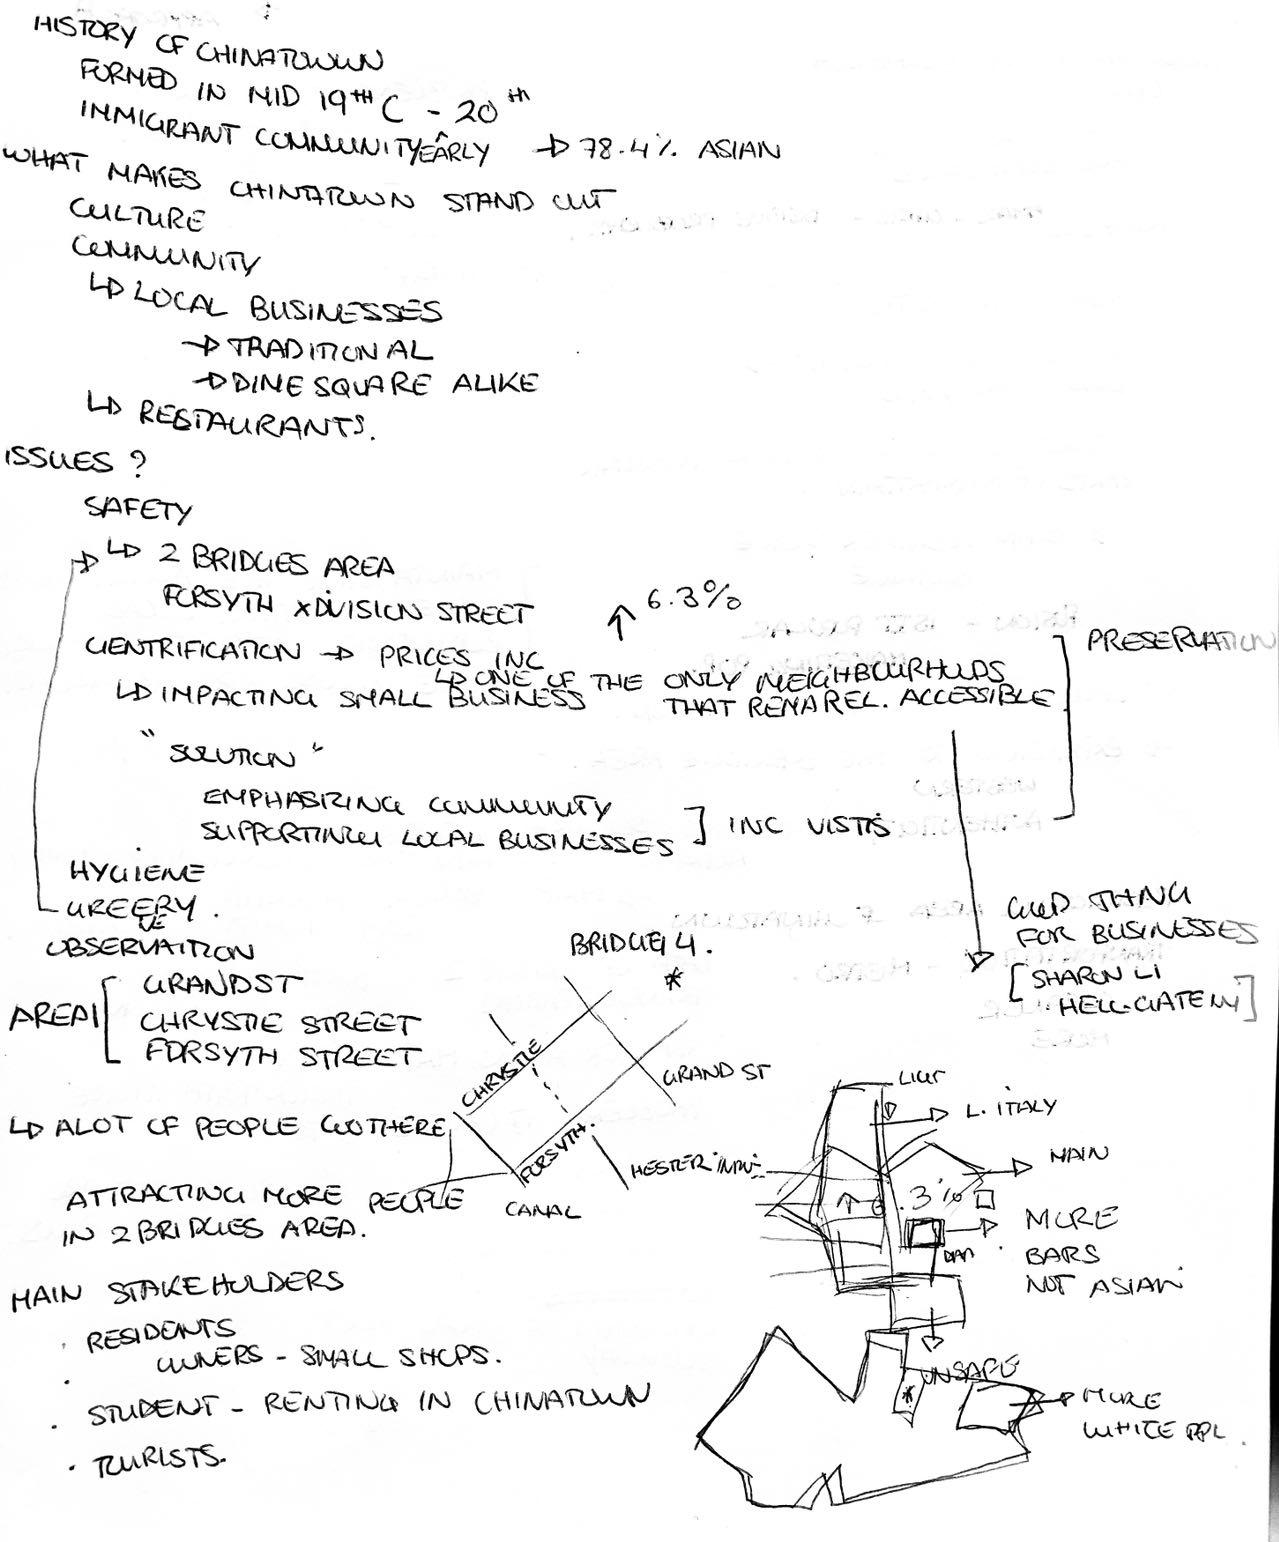 HISTORY OF CHINATOWN
FORMED IN MID 19TH C - 20TH
IMMIGRANT COMMUNITY EARLY → 78.4% ASIAN
WHAT MAKES CHINATOWN STAND OUT
CULTURE
COMMUNITY
↳ LOCAL BUSINESSES
→ TRADITIONAL
→ DIME SQUARE ALIKE
↳ RESTAURANTS.
ISSUES ?
SAFETY
↳ 2 BRIDGES AREA
FORSYTH x DIVISION STREET
↑ 6.3%
GENTRIFICATION → PRICES INC
↳ ONE OF THE ONLY NEIGHBOURHOODS
THAT REMA REL. ACCESSIBLE
PRESERVATION
↳ IMPACTING SMALL BUSINESS
"SOLUTION"
EMPHASIZING COMMUNITY
SUPPORTING LOCAL BUSINESSES
] INC VISTIS
HYGIENE
GREEERY.
GOOD THING
FOR BUSINESSES
[SHARON LI
HELL-GATE NY]
OBSERVAITION
AREA1
GRAND ST
CHRYSTIE STREET
FORSYTH STREET
BRIDGE 4.
*
CHRYSTIE
GRAND ST
FORSYTH.
HESTER
CANAL
↳ ALOT OF PEOPLE GO THERE
ATTRACTING MORE PEOPLE
IN 2 BRIDGES AREA.
L. ITALY
MAIN
↑ 6.3%
MORE
BARS
NOT ASIAN
UNSAFE
*
MORE
WHITE PPL.
MAIN STAKEHOLDERS
· RESIDENTS
· OWNERS - SMALL SHOPS.
· STUDENT - RENTING IN CHINATOWN
· TOURISTS.